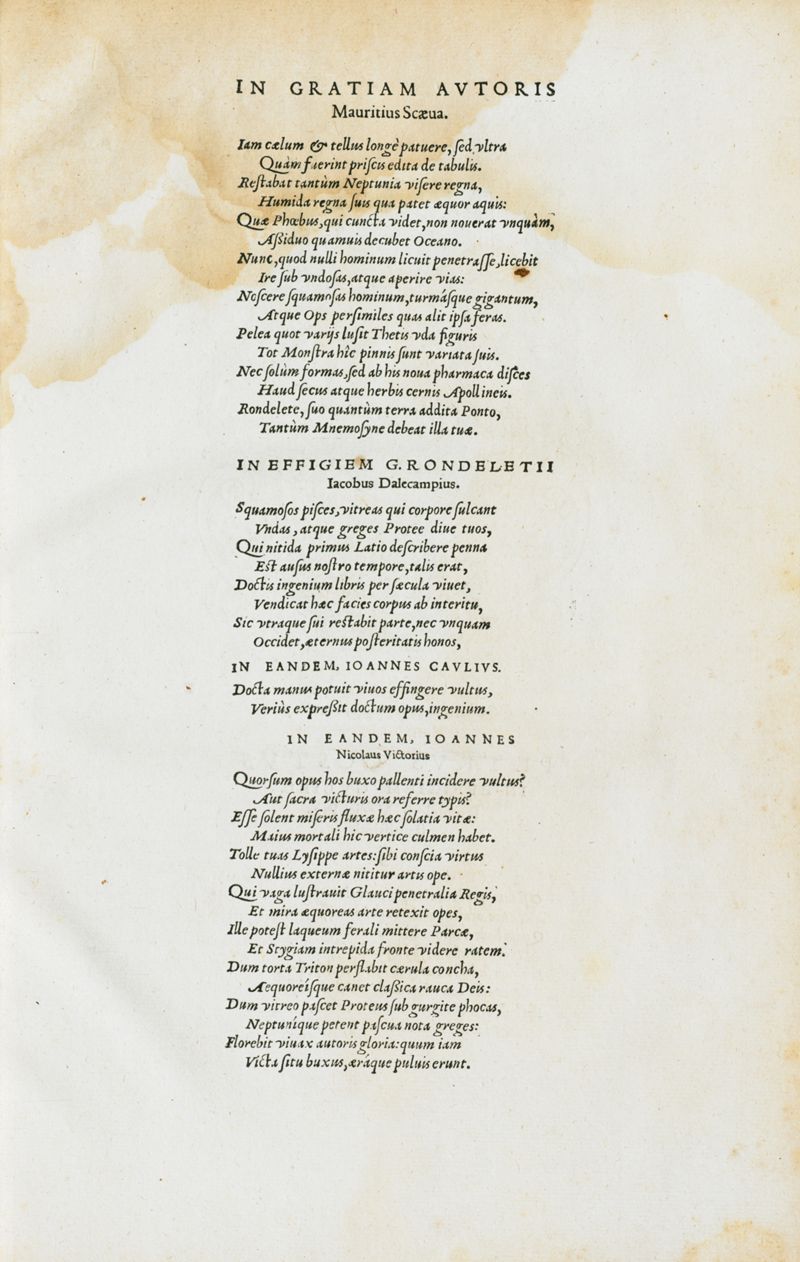 IN GRATIAM AVTORIS
Mauritius Scæua.
Iam cælum & tellus longè patuere, ſed vltra
Quàm fuerint priſcis edita de tabulis.
Reſtabat tantùm Neptunia viſere regna,
Humida regna ſuis qua patet æquor aquis:
Quæ Phœbus, qui cuncta videt, non nouerat vnquàm,
Aßiduo quamuis decubet Oceano.
Nunc, quod nulli hominum licuit penetraſſe, licebit
Ire ſub vndoſas, atque aperire vias:
Noſcere ſquamoſas hominum, turmáſque gigantum,
Atque Ops perſimiles quas alit ipſa feras.
Pelea quot varijs luſit Thetis vda figuris
Tot Monſtra hîc pinnis ſunt variata ſuis.
Nec ſolùm formas, ſed ab his noua pharmaca diſces
Haud ſecus atque herbis cernis Apollineis.
Rondelete, ſuo quantùm terra addita Ponto,
Tantùm Mnemoſyne debeat illa tuæ.
IN EFFIGIEM G. RONDELETII
Iacobus Dalecampius.
Squamoſos piſces, vitreas qui corpore ſulcant
Vndas, atque greges Protee diue tuos,
Qui nitida primus Latio deſcribere penna
Eſt auſus noſtro tempore, talis erat,
Doctis ingenium libris per ſæcula viuet,
Vendicat hæc facies corpus ab interitu,
Sic vtraque ſui reſtabit parte, nec vnquam
Occidet, æternus poſteritatis honos,
IN EANDEM, IOANNES CAVLIVS.
Docta manus potuit viuos effingere vultus,
Veriùs expreßit doctum opus, ingenium.
IN EANDEM, IOANNES
Nicolaus Victorius
Quorſum opus hos buxo pallenti incidere vultus?
Aut ſacra victuris ora referre typis?
Eſſe ſolent miſeris fluxæ hæc ſolatia vitæ:
Maius mortali hic vertice culmen habet.
Tolle tuas Lyſippe artes: ſibi conſcia virtus
Nullius externæ nititur artis ope.
Qui vaga luſtrauit Glauci penetralia Regis,
Et mira æquoreas arte retexit opes,
Ille poteſt laqueum ferali mittere Parcæ,
Et Stygiam intrepida fronte videre ratem.
Dum torta Triton perflabit cærula concha,
Aequoreíſque canet claßica rauca Deis:
Dum vitreo paſcet Proteus ſub gurgite phocas,
Neptuníque petent paſcua nota greges:
Florebit viuax autoris gloria: quum iam
Victa ſitu buxus, æráque puluis erunt.